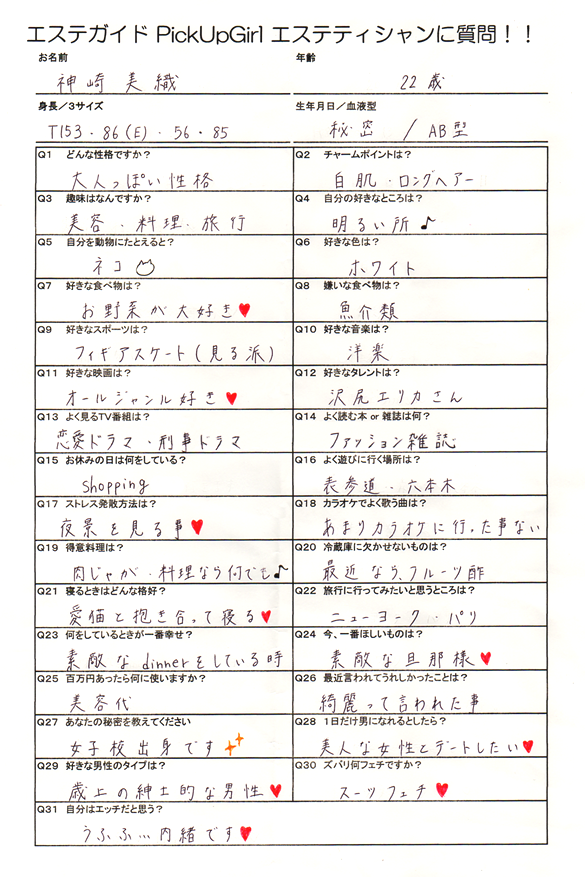 エステガイド PickUpGirl エステティシャンに質問！！
お名前 年齢
神崎 美織 22歳
身長／3サイズ 生年月日／血液型
T153・86(E)・56・85 秘密 / AB型
Q1 どんな性格ですか？ Q2 チャームポイントは？
大人っぽい性格 白肌・ロングヘアー
Q3 趣味はなんですか？ Q4 自分の好きなところは？
美容・料理・旅行 明るい所♪
Q5 自分を動物にたとえると？ Q6 好きな色は？
ネコ ホワイト
Q7 好きな食べ物は？ Q8 嫌いな食べ物は？
お野菜が大好き♥ 魚介類
Q9 好きなスポーツは？ Q10 好きな音楽は？
フィギアスケート(見る派) 洋楽
Q11 好きな映画は？ Q12 好きなタレントは？
オールジャンル好き♥ 沢尻エリカさん
Q13 よく見るTV番組は？ Q14 よく読む本 or 雑誌は何？
恋愛ドラマ・刑事ドラマ ファッション雑誌
Q15 お休みの日は何をしている？ Q16 よく遊びに行く場所は？
shopping 表参道・六本木
Q17 ストレス発散方法は？ Q18 カラオケでよく歌う曲は？
夜景を見る事♥ あまりカラオケに行った事ない
Q19 得意料理は？ Q20 冷蔵庫に欠かせないものは？
肉じゃが・料理なら何でも♪ 最近なら、フルーツ酢
Q21 寝るときはどんな格好？ Q22 旅行に行ってみたいと思うところは？
愛猫と抱き合って寝る♥ ニューヨーク・パリ
Q23 何をしているときが一番幸せ？ Q24 今、一番ほしいものは？
素敵なdinnerをしている時 素敵な旦那様♥
Q25 百万円あったら何に使いますか？ Q26 最近言われてうれしかったことは？
美容代 綺麗って言われた事
Q27 あなたの秘密を教えてください Q28 1日だけ男になれるとしたら？
女子校出身です 美人な女性とデートしたい♥
Q29 好きな男性のタイプは？ Q30 ズバリ何フェチですか？
歳上の紳士的な男性♥ スーツフェチ♥
Q31 自分はエッチだと思う？
うふふ…内緒です♥